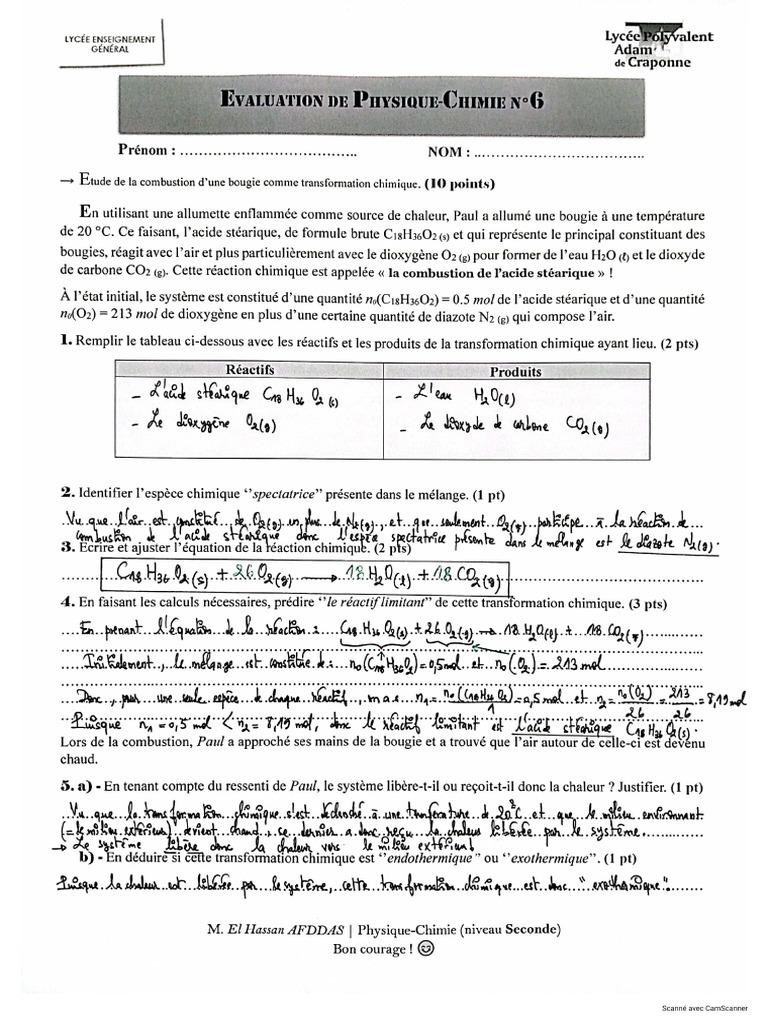 LYCÉE ENSEIGNEMENT
GÉNÉRAL
Lycée Polyvalent
Adam
de Craponne
EVALUATION DE PHYSIQUE-CHIMIE N°6
Prénom : ……………………………….. NOM : ..……………………………….
→ Etude de la combustion d'une bougie comme transformation chimique. (10 points)
En utilisant une allumette enflammée comme source de chaleur, Paul a allumé une bougie à une température
de 20 °C. Ce faisant, l'acide stéarique, de formule brute C18H36O2 (s) et qui représente le principal constituant des
bougies, réagit avec l'air et plus particulièrement avec le dioxygène O2 (g) pour former de l'eau H2O (ℓ) et le dioxyde
de carbone CO2 (g). Cette réaction chimique est appelée « la combustion de l'acide stéarique » !
À l'état initial, le système est constitué d'une quantité n0(C18H36O2) = 0.5 mol de l'acide stéarique et d'une quantité
n0(O2) = 213 mol de dioxygène en plus d'une certaine quantité de diazote N2 (g) qui compose l'air.
1. Remplir le tableau ci-dessous avec les réactifs et les produits de la transformation chimique ayant lieu. (2 pts)
Réactifs Produits
- L'acide stéarique C18 H36 O2(s) - L'eau H2O(l)
- Le dioxygène O2(g) - Le dioxyde de carbone CO2(g)
2. Identifier l'espèce chimique ‘‘spectatrice’’ présente dans le mélange. (1 pt)
Vu que l'air est constitué de O2(g) en plus de N2(g), et que seulement O2(g) participe à la réaction de
combustion de l'acide stéarique donc l'espèce spectatrice présente dans le mélange est le diazote N2(g).
3. Ecrire et ajuster l'équation de la réaction chimique. (2 pts)
C18 H36 O2(s) + 26 O2(g) → 18 H2O(l) + 18 CO2(g)
4. En faisant les calculs nécessaires, prédire ‘‘le réactif limitant’’ de cette transformation chimique. (3 pts)
En prenant l'équation de la réaction : C18 H36 O2(s) + 26 O2(g) → 18 H2O(l) + 18 CO2(g)
Initialement, le mélange est constitué de : n0(C18H36O2) = 0,5 mol et n0(O2) = 213 mol
Donc, pour une seule espèce de chaque réactif, on a : n1 = n0(C18H36O2)/1 = 0,5 mol et n2 = n0(O2)/26 = 213/26 = 8,19 mol
Puisque n1 = 0,5 mol < n2 = 8,19 mol, donc le réactif limitant est l'acide stéarique C18 H36 O2(s).
Lors de la combustion, Paul a approché ses mains de la bougie et a trouvé que l'air autour de celle-ci est devenu
chaud.
5. a) - En tenant compte du ressenti de Paul, le système libère-t-il ou reçoit-il donc la chaleur ? Justifier. (1 pt)
Vu que la transformation chimique s'est déclenché à une température de 20°C et que le milieu environnant
(= le milieu extérieur) devient chaud, ce dernier a donc reçu la chaleur libérée par le système.
→ Le système libère donc la chaleur vers le milieu extérieur !
b) - En déduire si cette transformation chimique est ‘‘endothermique’’ ou ‘‘exothermique’’. (1 pt)
Puisque la chaleur est libérée par le système, cette transformation chimique est donc "exothermique".
M. El Hassan AFDDAS | Physique-Chimie (niveau Seconde)
Bon courage ! ☺
Scanné avec CamScanner